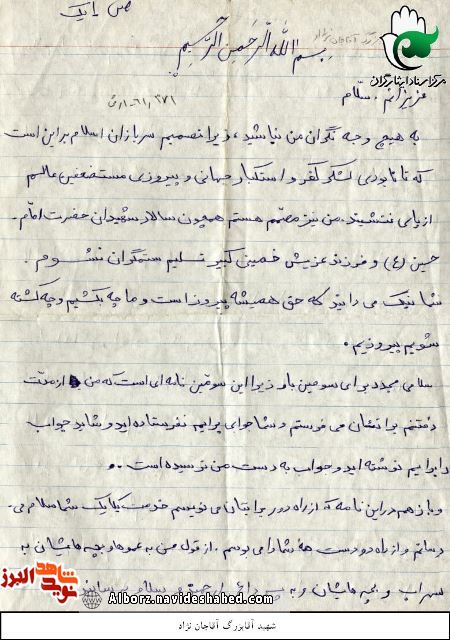 ص یک
بسم الله الرحمن الرحیم
مرکز اسناد ایثارگران
عزیزانم. سلام
به هیچ وجه نگران من نباشید، زیرا تصمیم سربازان اسلام بر این است
که تا نابودی لشکر کفر و استکبار جهانی و پیروزی مستضعفین عالم
از پای ننشینند. من نیز مصمم هستم همچون سالار شهیدان حضرت امام
حسین (ع) و فرزند عزیزش خمینی کبیر تسلیم ستمگران نشوم.
شما نیک می دانید که حق همیشه پیروز است و ما چه بکشیم و چه کشته
شویم پیروزیم.
سلامی مجدد برای سومین بار زیرا این سومین نامه ای است که من از مدت
رفتنم برایتان می فرستم و شما جوابی برایم نفرستاده اید و شاید جواب
را برایم نوشته اید و جواب به دست من نرسیده است.
و باز هم در این نامه که از راه دور برایتان می نویسم خدمت یکایک شما سلام می
رسانم و از راه دور دست همه شما را می بوسم. از قول من به عموها و بچه هایشان به
سهراب و بچه هایشان و به
نوید شاهد البرز
Alborz.navideshahed.com
شهید آقابزرگ آقاجان نژاد